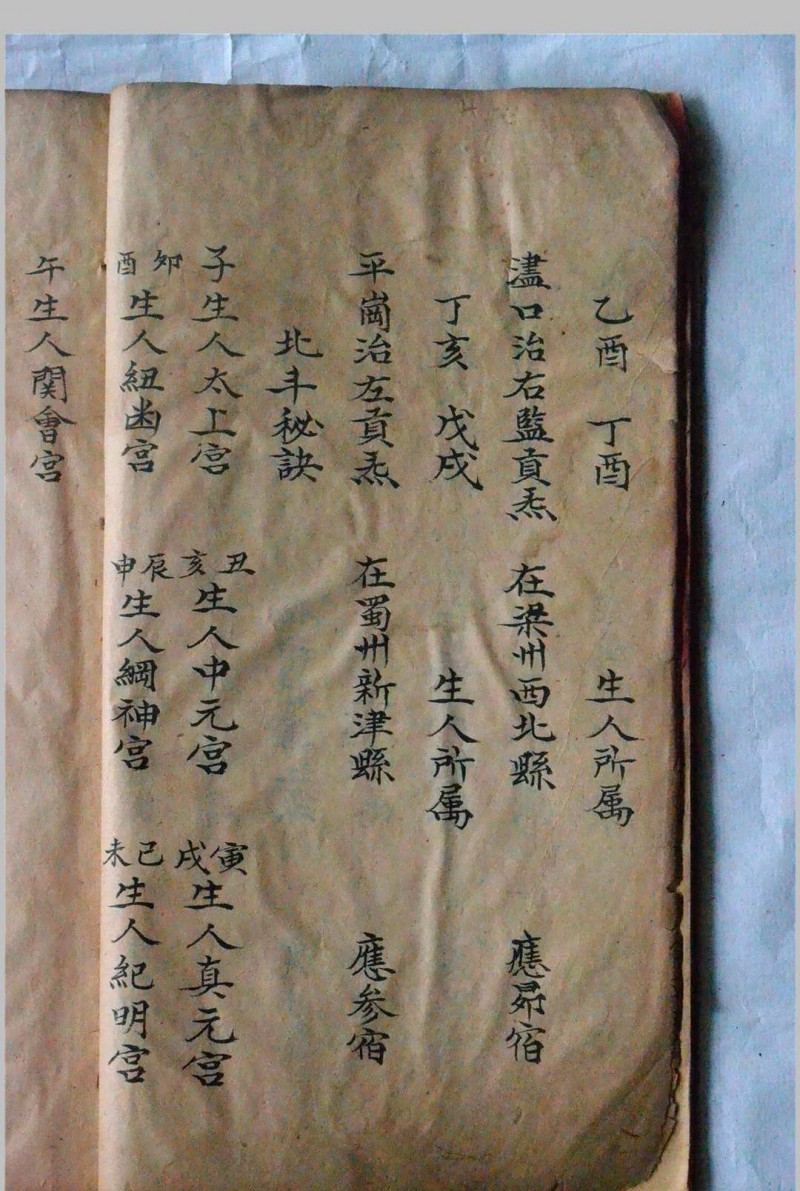 乙酉 丁酉 生人所属
濜口治右監貢炁 在梁州西北縣 應昴宿
丁亥 戊戌 生人所属
平崗治左貢炁 在蜀州新津縣 應参宿
北斗秘訣
子生人太上宫 丑亥生人中元宫 寅戌生人真元宫
卯酉生人紐幽宫 辰申生人綱神宫 巳未生人紀明宫
午生人関會宫